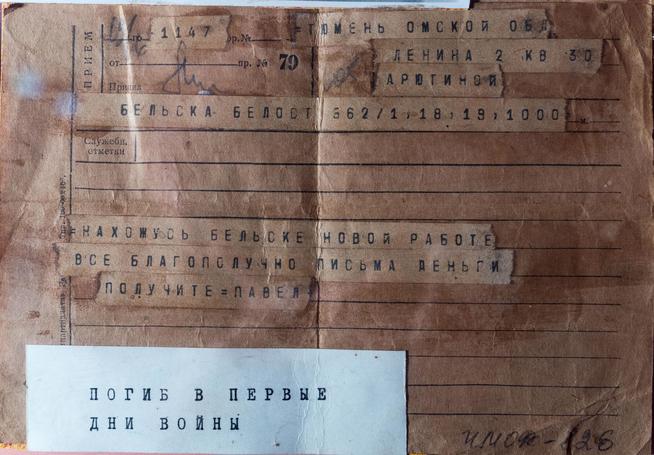 ПРИЕМ
1147 пр.№ ТЮМЕНЬ ОМСКОЙ ОБЛ
от пр. № 79 ЛЕНИНА 2 КВ 30
АРЮГИНОЙ
БЕЛЬСКА БЕЛОСТ 362/1,18,19,1000
Служебн.
отметки
=НАХОЖУСЬ БЕЛЬСКЕ НОВОЙ РАБОТЕ
ВСЕ БЛАГОПОЛУЧНО ПИСЬМА ДЕНЬГИ
ПОЛУЧИТЕ=ПАВЕЛ
ПОГИБ В ПЕРВЫЕ
ДНИ ВОЙНЫ